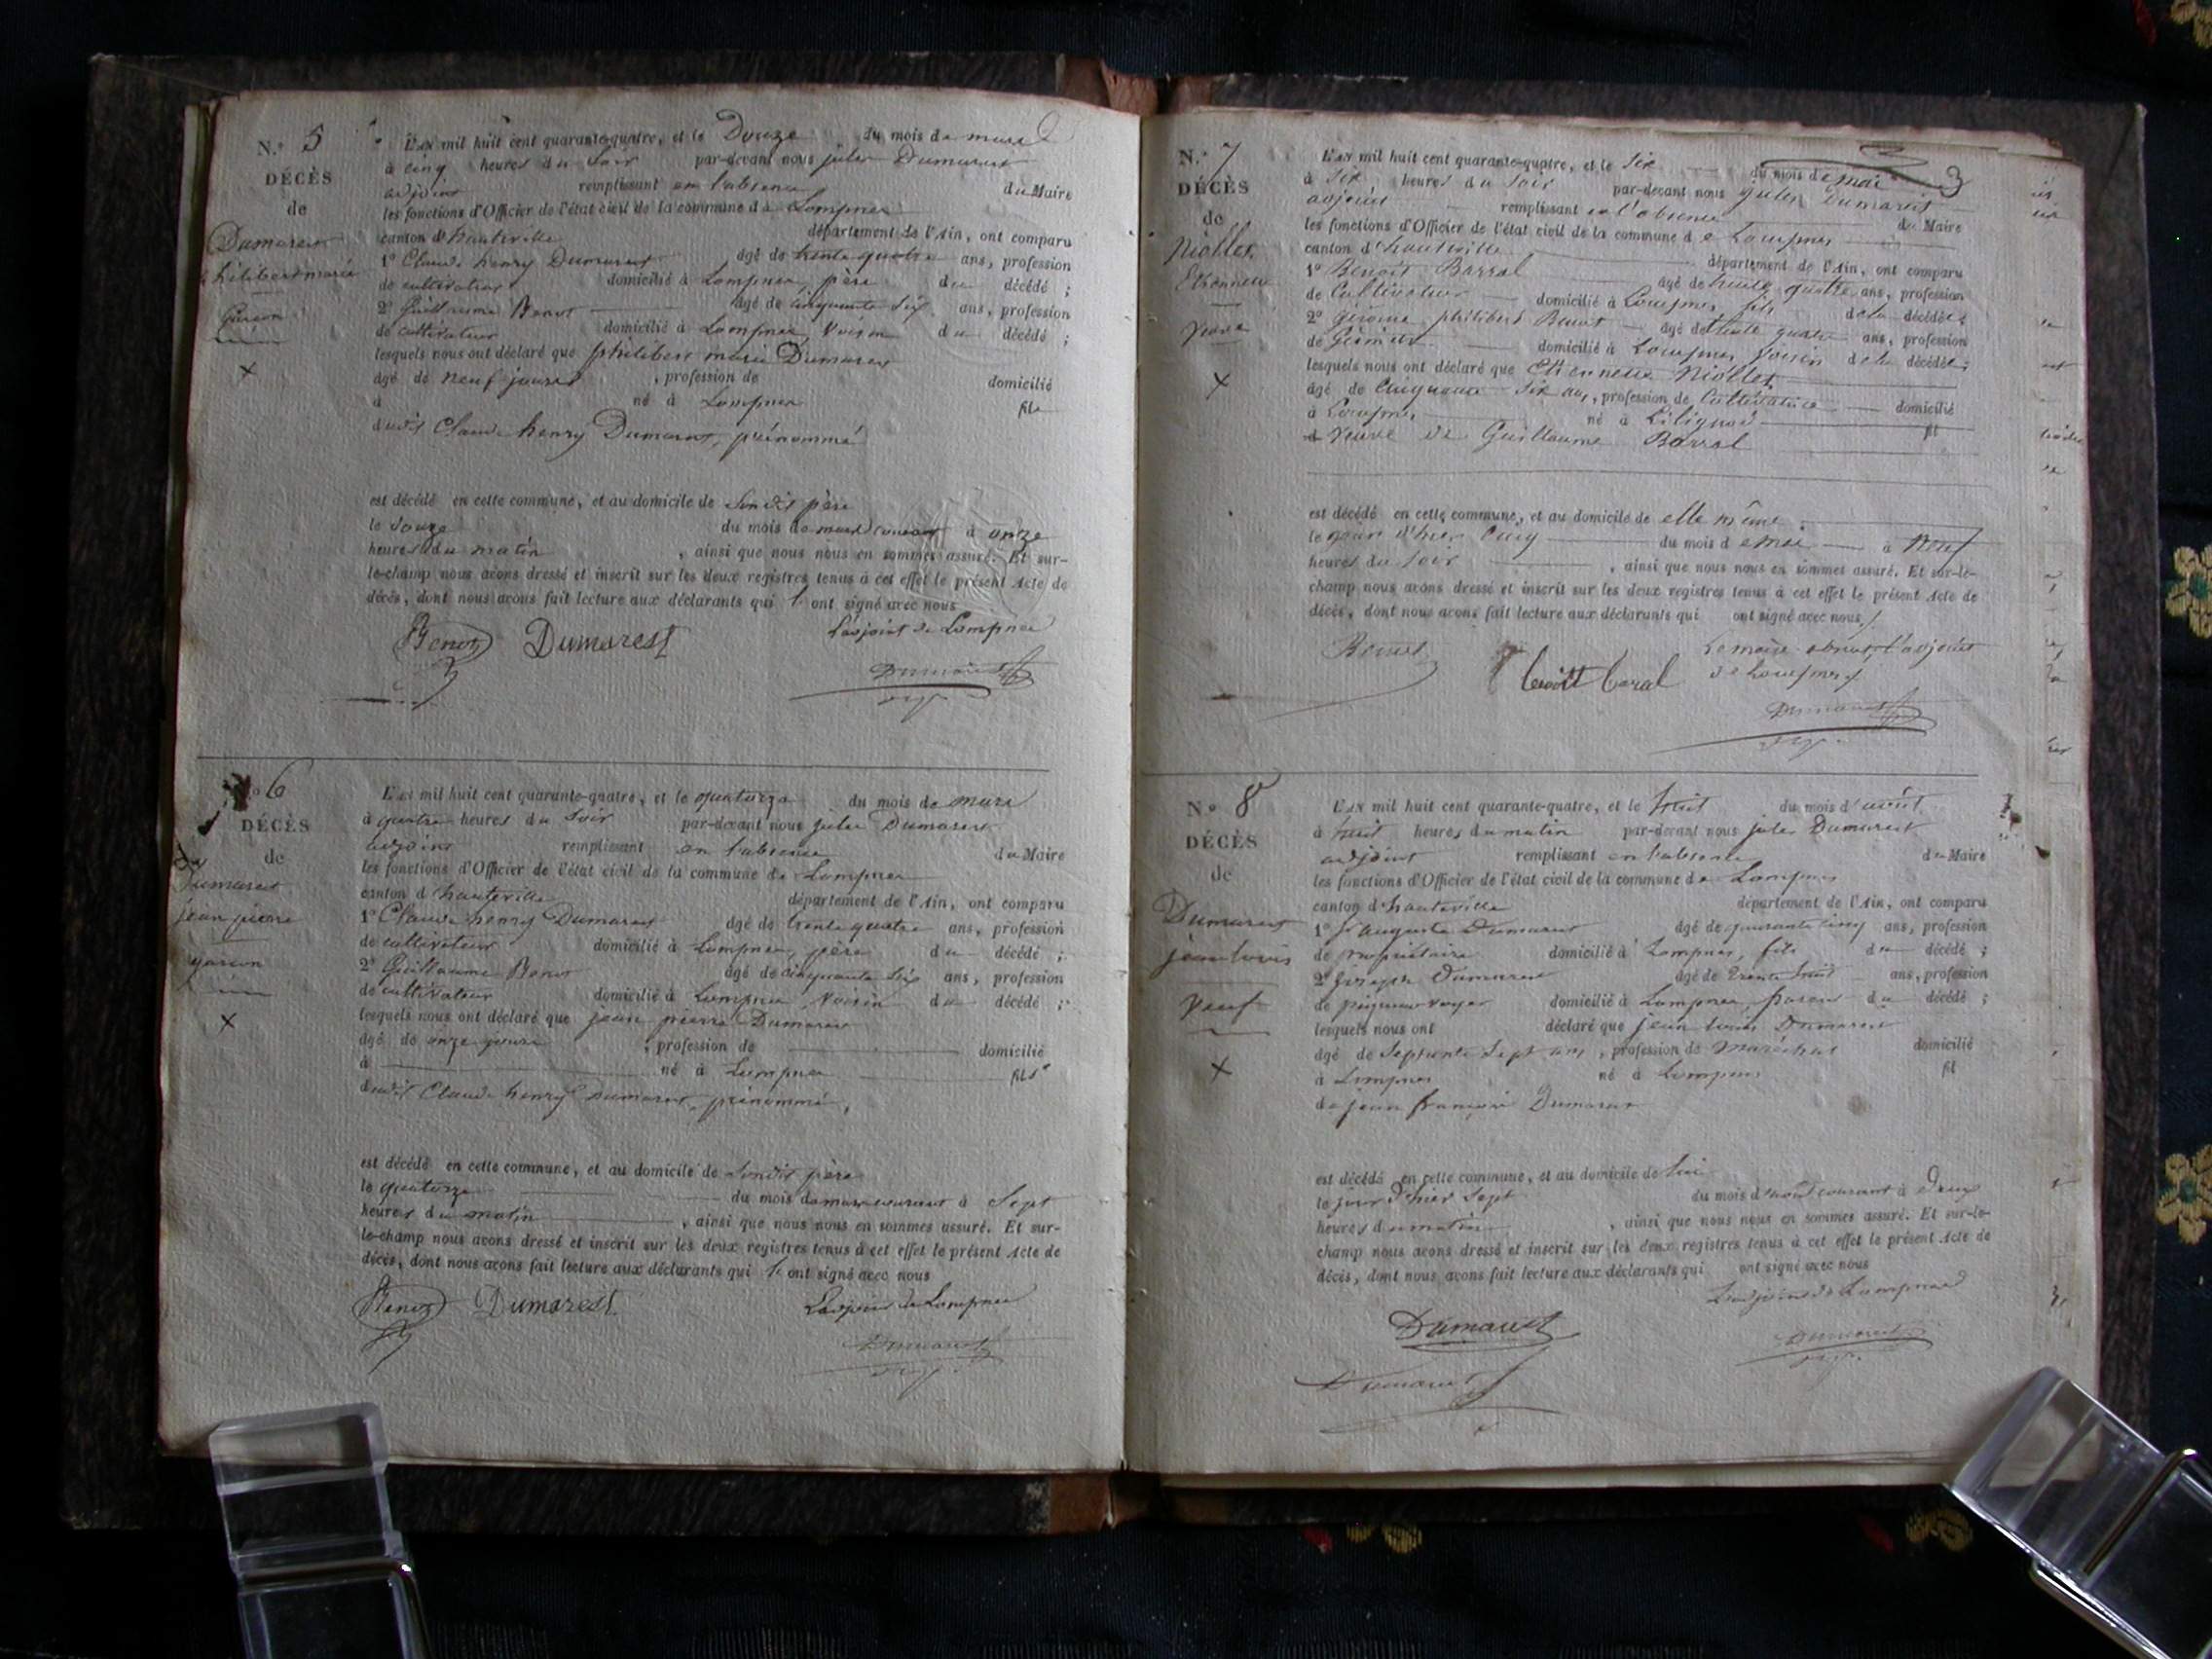 N.o 5
DÉCÈS
de
Dumarest
philibert marie
Garçon
L'AN mil huit cent quarante-quatre, et le Douze du mois de mars
à cinq heures du soir par-devant nous jules Dumarest
adjoint remplissant en l'absence du Maire
les fonctions d'Officier de l'état civil de la commune de Lompnes
canton d'hauteville département de l'Ain, ont comparu
1o Claude henry Dumarest âgé de trente quatre ans, profession
de cultivateur domicilié à Lompnes, père du décédé ;
2o Guillaume Benot âgé de cinquante six ans, profession
de cultivateur domicilié à Lompnes, voisin du décédé ;
lesquels nous ont déclaré que philibert marie Dumarest
âgé de neuf jours, profession de domicilié
à né à Lompnes fils
dudit Claude henry Dumarest, prénommé
est décédé en cette commune, et au domicile de sondit père
le douze du mois de mars courant à onze
heures du matin, ainsi que nous nous en sommes assuré. Et sur-
le-champ nous avons dressé et inscrit sur les deux registres tenus à cet effet le présent Acte de
décès, dont nous avons fait lecture aux déclarants qui ont signé avec nous
L'adjoint de Lompnes
Benot Dumarest
Dumarest
No 6
DÉCÈS
de
Dumarest
jean pierre
garçon
L'AN mil huit cent quarante-quatre, et le quatorze du mois de mars
à quatre heures du soir par-devant nous jules Dumarest
adjoint remplissant en l'absence du Maire
les fonctions d'Officier de l'état civil de la commune de Lompnes
canton d'hauteville département de l'Ain, ont comparu
1o Claude henry Dumarest âgé de trente quatre ans, profession
de cultivateur domicilié à Lompnes, père du décédé ;
2o Guillaume Benot âgé de cinquante six ans, profession
de cultivateur domicilié à Lompnes, voisin du décédé ;
lesquels nous ont déclaré que jean pierre Dumarest
âgé de onze jours, profession de domicilié
à né à Lompnes fils
dudit Claude henry Dumarest, prénommé,
est décédé en cette commune, et au domicile de sondit père
le quatorze du mois de mars courant à sept
heures du matin, ainsi que nous nous en sommes assuré. Et sur-
le-champ nous avons dressé et inscrit sur les deux registres tenus à cet effet le présent Acte de
décès, dont nous avons fait lecture aux déclarants qui ont signé avec nous
Benot Dumarest L'adjoint de Lompnes
Dumarest
3
N.o 7
DÉCÈS
de
Niollet
Etiennette
veuve
L'AN mil huit cent quarante-quatre, et le six du mois de mai
à six heures du soir par-devant nous jules Dumarest
adjoint remplissant en l'absence du Maire
les fonctions d'Officier de l'état civil de la commune de Lompnes
canton d'hauteville département de l'Ain, ont comparu
1o Benoît Barral âgé de trente quatre ans, profession
de Cultivateur domicilié à Lompnes fils de la décédée ;
2o philibert Benot âgé de trente quatre ans, profession
de domicilié à Lompnes voisin de la décédée ;
lesquels nous ont déclaré que Etiennette Niollet
âgé de Cinquante six ans, profession de Cultivatrice domicilié
à Lompnes né à Lilignod fil
veuve de Guillaume Barral
est décédé en cette commune, et au domicile de elle même
le jour d'hier Cinq du mois de mai à Neuf
heures du soir, ainsi que nous nous en sommes assuré. Et sur-le-
champ nous avons dressé et inscrit sur les deux registres tenus à cet effet le présent Acte de
décès, dont nous avons fait lecture aux déclarants qui ont signé avec nous
Le maire absent, l'adjoint
de Lompnes
Benot
benoitt baral
Dumarest
No 8
DÉCÈS
de
Dumarest
jean louis
veuf
L'AN mil huit cent quarante-quatre, et le huit du mois d'août
à huit heures du matin par-devant nous jules Dumarest
adjoint remplissant en l'absence du Maire
les fonctions d'Officier de l'état civil de la commune de Lompnes
canton d'hauteville département de l'Ain, ont comparu
1o auguste Dumarest âgé de quarante cinq ans, profession
de propriétaire domicilié à Lompnes, fils du décédé ;
2o joseph Dumarest âgé de trente huit ans, profession
de domicilié à Lompnes, parent du décédé ;
lesquels nous ont déclaré que jean louis Dumarest
âgé de septante sept ans, profession de maréchal domicilié
à Lompnes né à Lompnes fil
de jean françois Dumarest
est décédé en cette commune, et au domicile de lui
le jour d'hier sept du mois d'août courant à deux
heures du matin, ainsi que nous nous en sommes assuré. Et sur-le-
champ nous avons dressé et inscrit sur les deux registres tenus à cet effet le présent Acte de
décès, dont nous avons fait lecture aux déclarants qui ont signé avec nous
L'adjoint de Lompnes
Dumarest
Dumarest
Dumarest